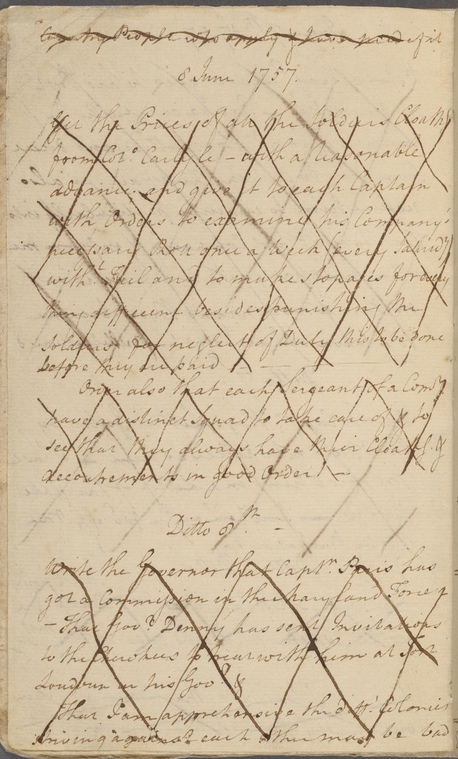 Country People who apply & have need of it
8 June 1757.
Get the Prices of all the Soldiers Cloaths
from Colo. Carlyle – with a reasonable
advance. and give it to each Captain
with Orders to examine his Company's
necessary Roll once a Week every Saturdy
without Fail and to make stopages for every
thing deficient besides punishing the
Soldiers for neglect of Duty this to be done
before they are paid
Order also that each Sergeant of a Compy
have a distinct squad to take care of & to
see that they always have their Cloaths &
Accoutrements in good Order! –
Ditto 8th. –
Write the Governor that Captn. Peris has
got a Commission in the Maryland Forces
– That Govr. Denny has sent Invitations
to the Cherokees to treat with him at Fort
Loudoun in his Govt. &
That I am apprehensive the difft. Colonies
striving against each other may be bad